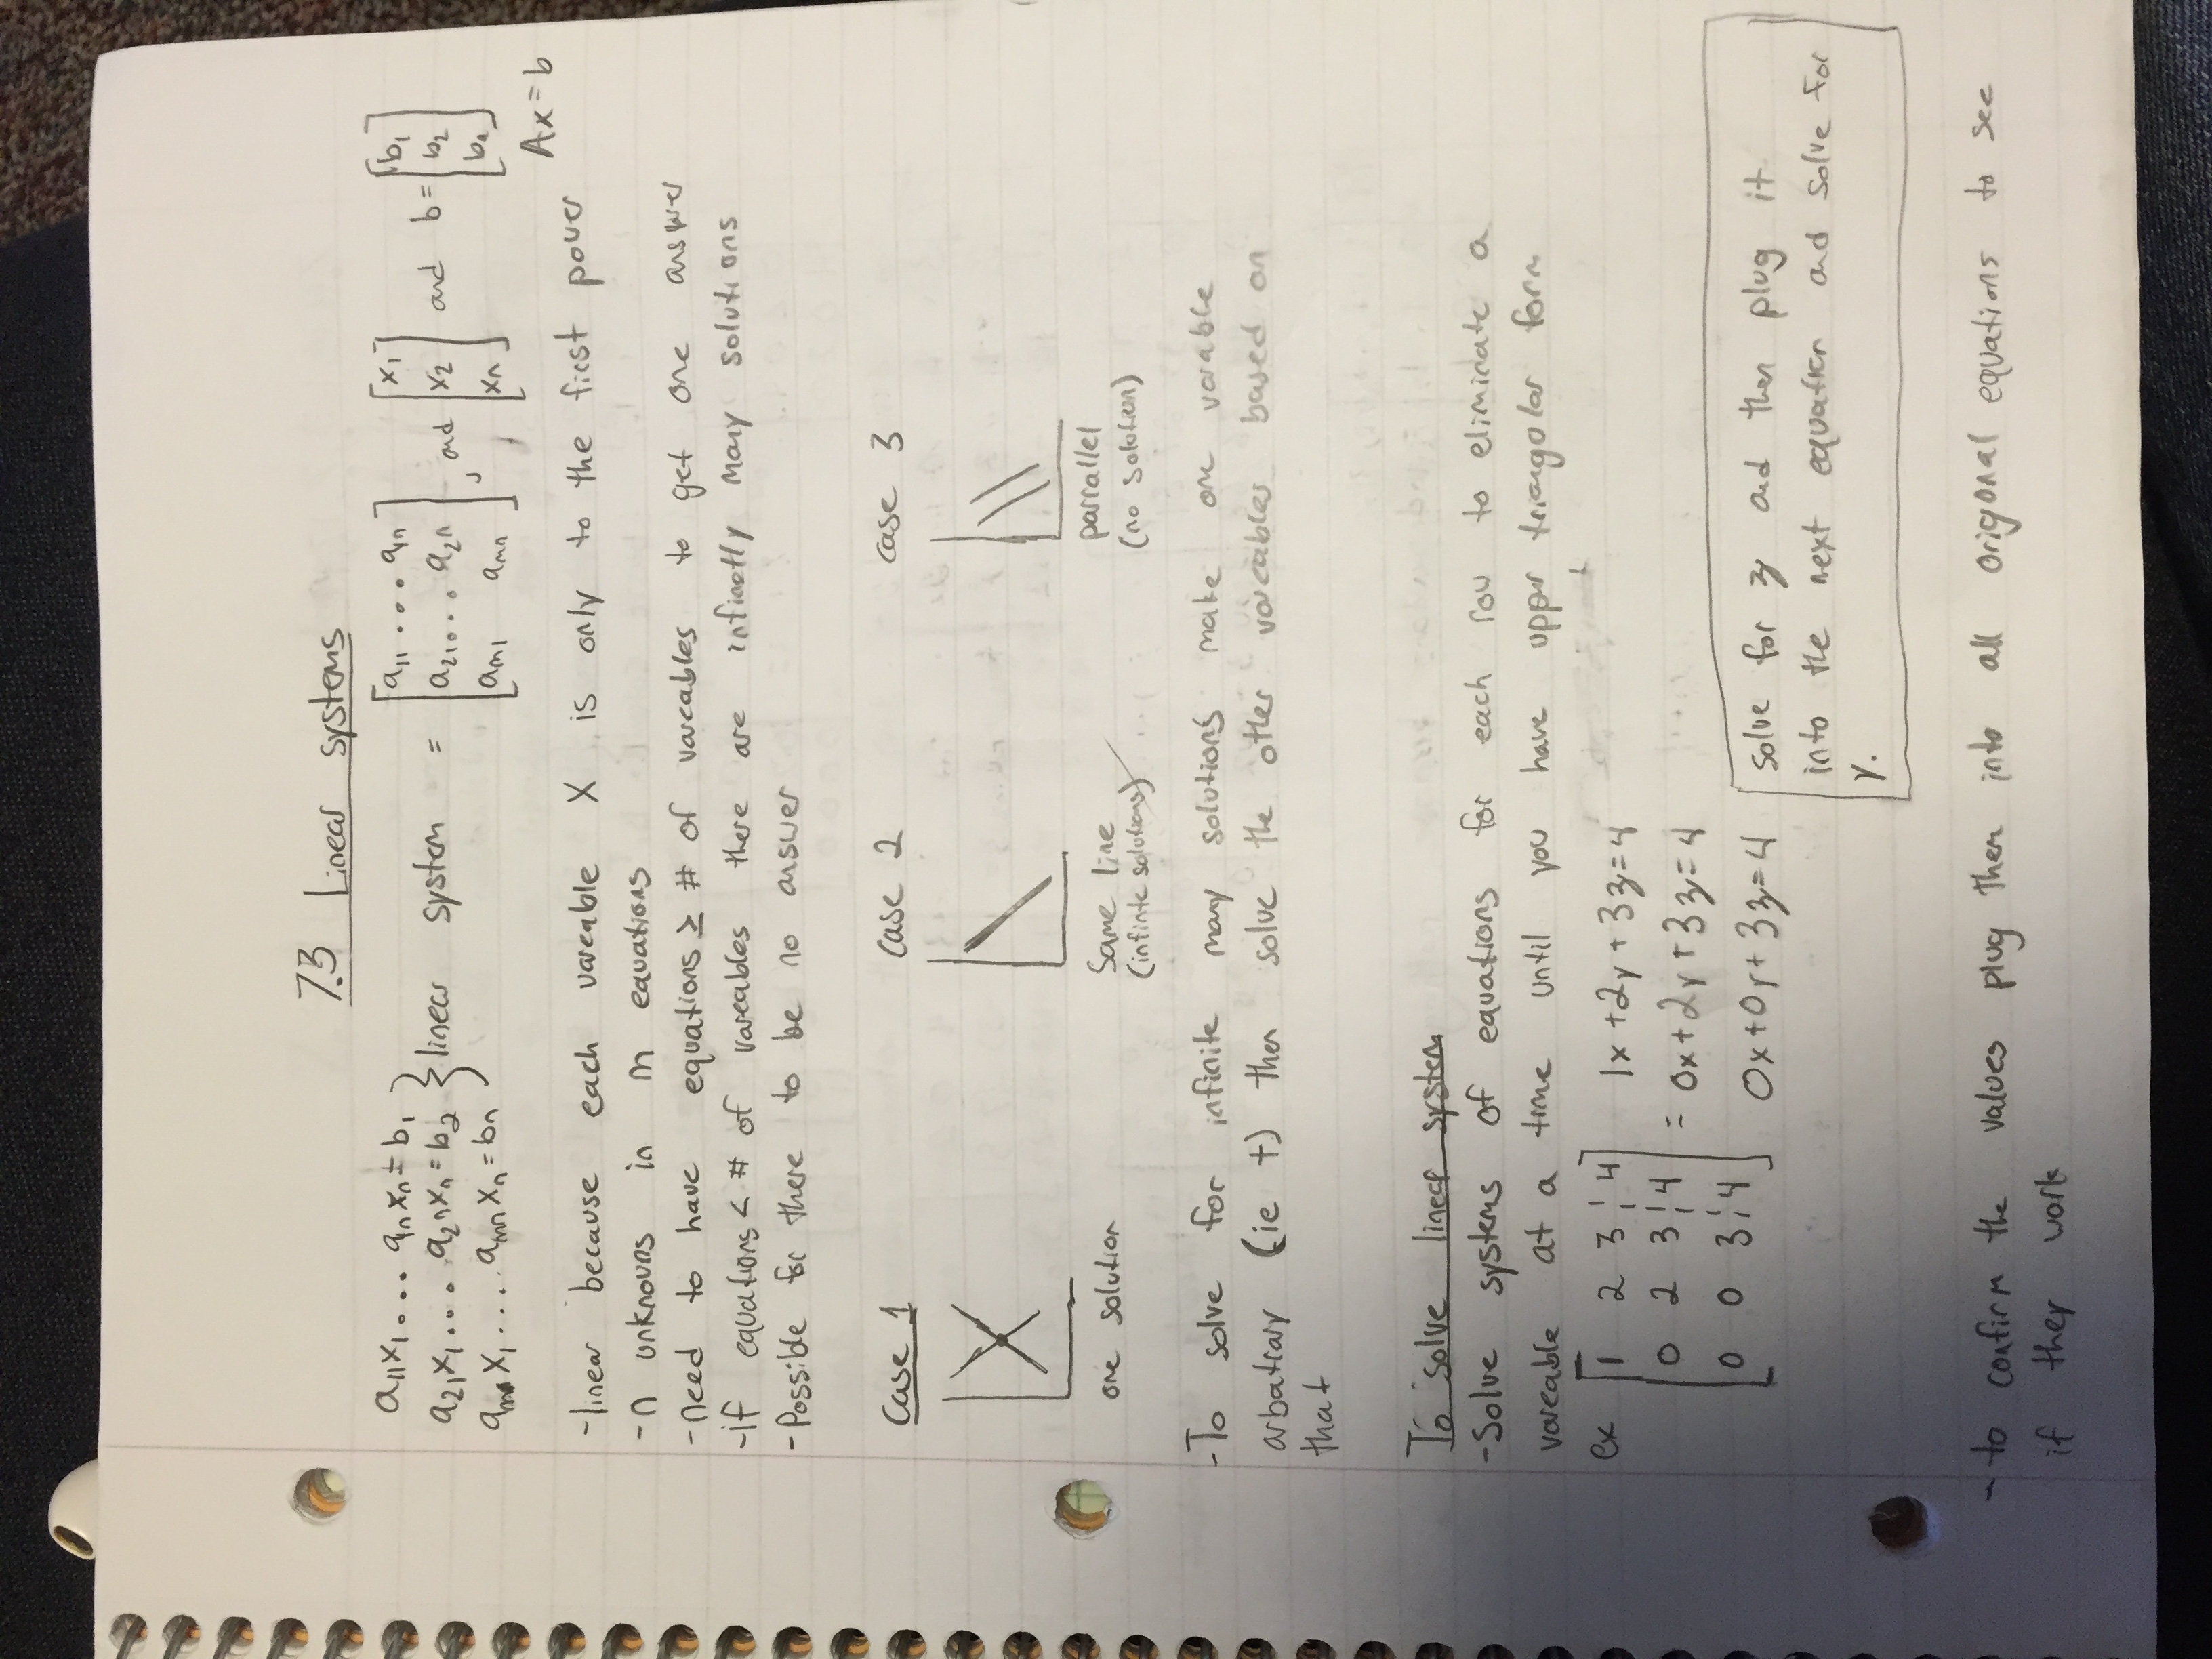 7.3 Linear systems
a₁₁x₁ . . . a₁ₙxₙ = b₁
a₂₁x₁ . . . a₂ₙxₙ = b₂ } linear system = [a₁₁ . . . a₁ₙ; a₂₁ . . . a₂ₙ; aₘ₁ aₘₙ], and [x₁; x₂; xₙ] and b = [b₁; b₂; bₙ]
aₘ₁x₁ . . . aₘₙxₙ = bₙ
Ax = b
- linear because each vareable X is only to the first power
- n unknowns in m equations
- need to have equations ≥ # of vareables to get one answer
- if equations < # of vareables there are infinetly many solutions
- Possible for there to be no answer
Case 1 Case 2 Case 3
one solution Same line (infinte solutions) parrallel (no solution)
- To solve for infinite many solutions make one varable
arbatrary (ie t) then solve the other vareables based on
that
To solve linear system
- Solve systems of equations for each row to eliminate a
vareable at a time until you have upper triangular form
ex [1 2 3 ¦ 4] 1x + 2y + 3z = 4
[0 2 3 ¦ 4] = 0x + 2y + 3z = 4
[0 0 3 ¦ 4] 0x + 0y + 3z = 4
solve for z and then plug it
into the next equation and solve for
y.
- to confirm the values plug then into all origonal equations to see
if they work